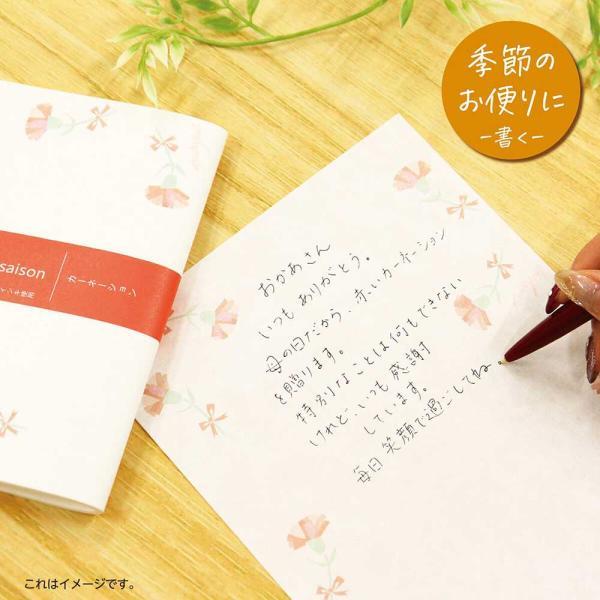 季節の
お便りに
－書く－
saison
カーネーション
インキ使用
おかあさん
いつもありがとう。
母の日だから、赤いカーネーション
を贈ります。
特別なことは何もできない
けれど、いつも感謝
しています。
毎日笑顔で過ごしてね。
これはイメージです。